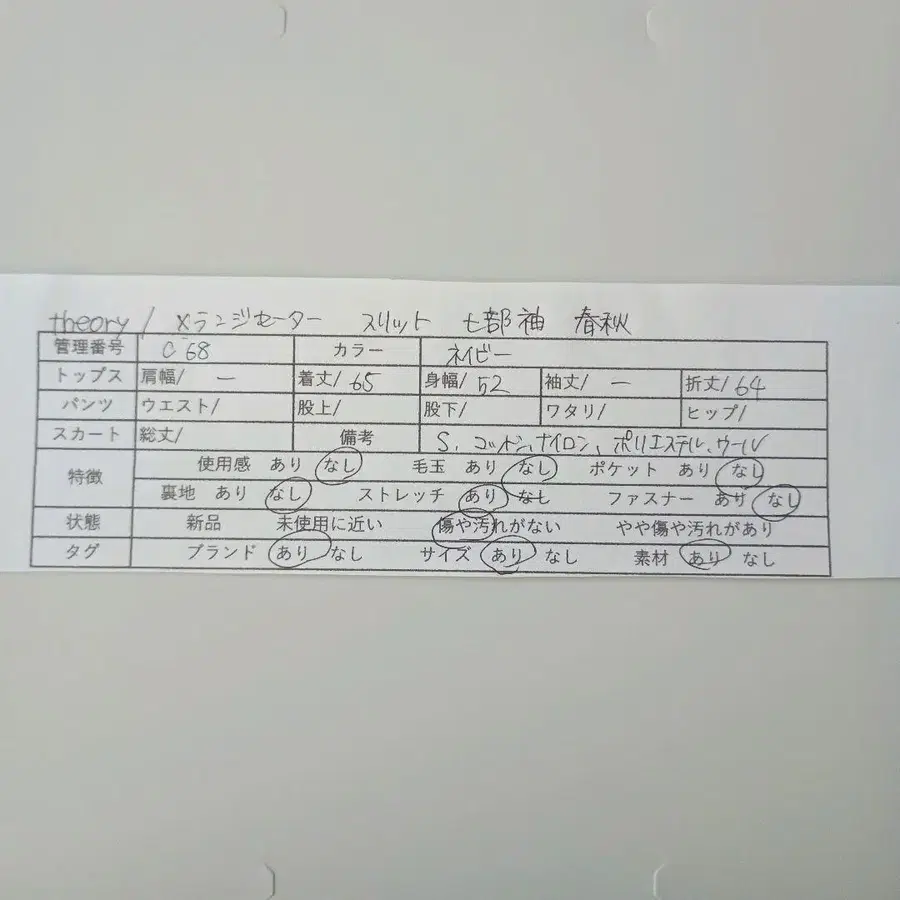 theory / メランジセーター スリット 七部袖 春秋
管理番号 C 68 カラー ネイビー
トップス 肩幅/ ー 着丈/ 65 身幅/ 52 袖丈/ ー 裄丈/ 64
パンツ ウエスト/ 股上/ 股下/ ワタリ/ ヒップ/
スカート 総丈/ 備考 S. コットン、ナイロン、ポリエステル、ウール
特徴 使用感 あり なし 毛玉 あり なし ポケット あり なし
裏地 あり なし ストレッチ あり なし ファスナー あり なし
状態 新品 未使用に近い 傷や汚れがない やや傷や汚れがあり
タグ ブランド あり なし サイズ あり なし 素材 あり なし